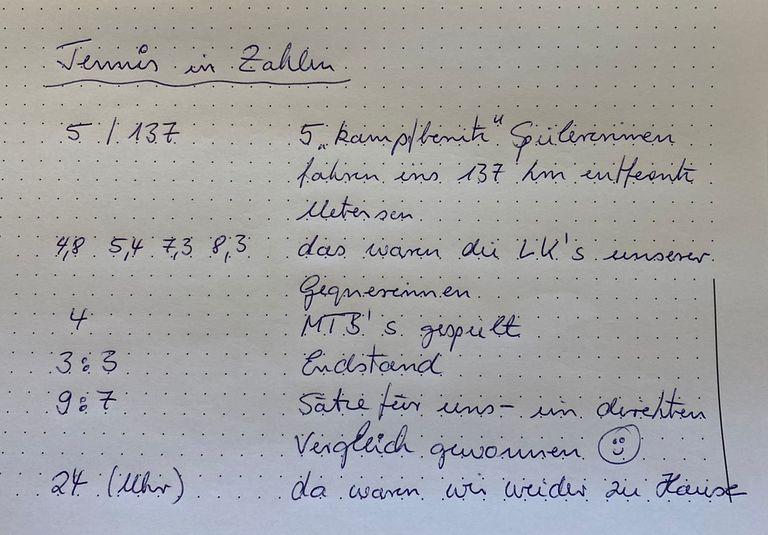 Tennis in Zahlen
5 / 137 5 „kampfbereite" Spielerinnen
fahren ins 137 km entfernte
Uetersen
4,8 5,4 7,3 8,3 das waren die LK's unserer
Gegnerinnen
4 MTB's gespielt
3:3 Endstand
9:7 Sätze für uns - im direkten
Vergleich gewonnen ☺
24 (Uhr) da waren wir wieder zu Hause